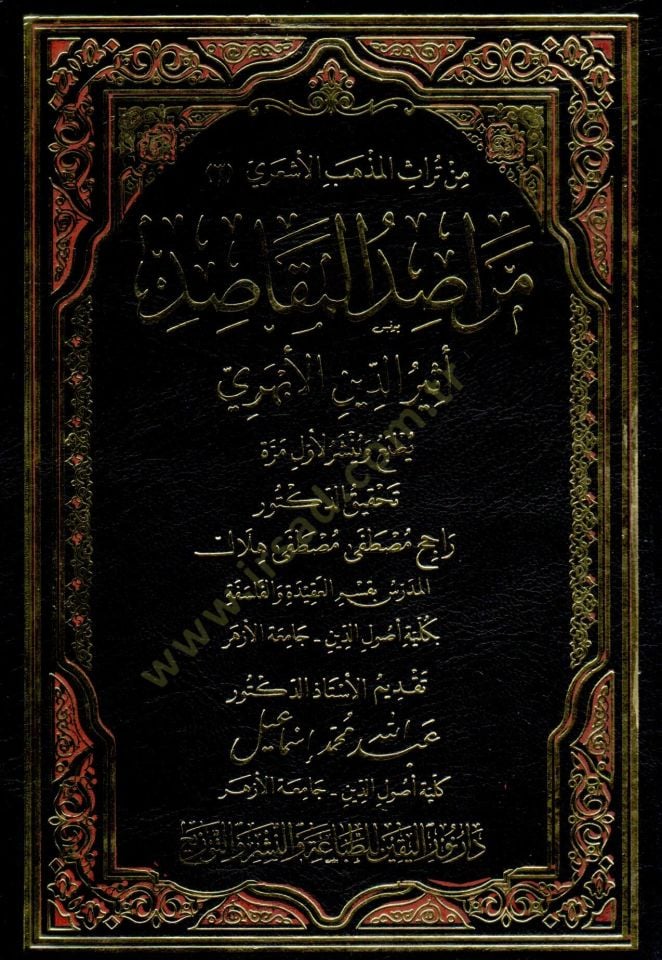 مِنْ تُرَاثِ المَذْهَبِ الأَشْعَرِيّ (٣)
مَرَاصِدُ المَقَاصِدِ
أَثِيرُ الدِّينِ الأَبْهَرِيّ
يُطْبَعُ وَيُنْشَرُ لِأَوَّلِ مَرَّة
تَحْقِيقُ الدُّكْتُور
رَاجِح مُصْطَفَى مُصْطَفَى هِلَال
المُدَرِّس بِقِسْمِ العَقِيدَةِ وَالفَلْسَفَةِ
بِكُلِّيَّةِ أُصُولِ الدِّينِ - جَامِعَة الأَزْهَر
تَقْدِيمُ الأُسْتَاذِ الدُّكْتُور
عبد الله محمد إسماعيل
كُلِّيَّة أُصُولِ الدِّينِ - جَامِعَة الأَزْهَر
دَار نُور اليَقِين لِلطِّبَاعَةِ وَالنَّشْرِ وَالتَّوْزِيعِ
www.irsad.com.tr